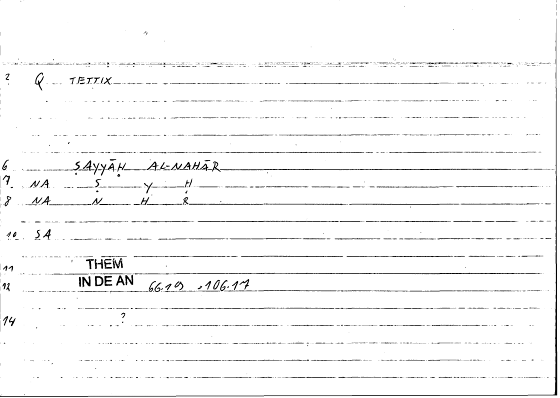 2 Q TETTIX
6 ṢAYYĀḤ AL-NAHĀR
7 NA Ṣ Y Ḥ
8 NA N H R
10 SA
11 THEM
12 IN DE AN 66.19 , 106.17
14 ?